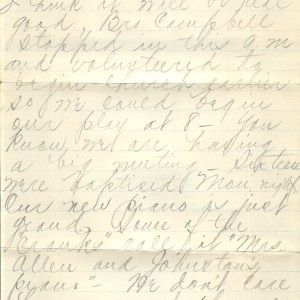 I think it will be just
good, Bro Campbell
stopped in this a.m
and volunteered to
begin church earlier
so we could begin
our play at 8 - You
know we are having
a big meeting - Sixteen
were baptised Mon, night
Our new piano is just
grand. Some of the
"Cranks" call it "Mrs.
Allen and Johnston's
pyano" - We dont care